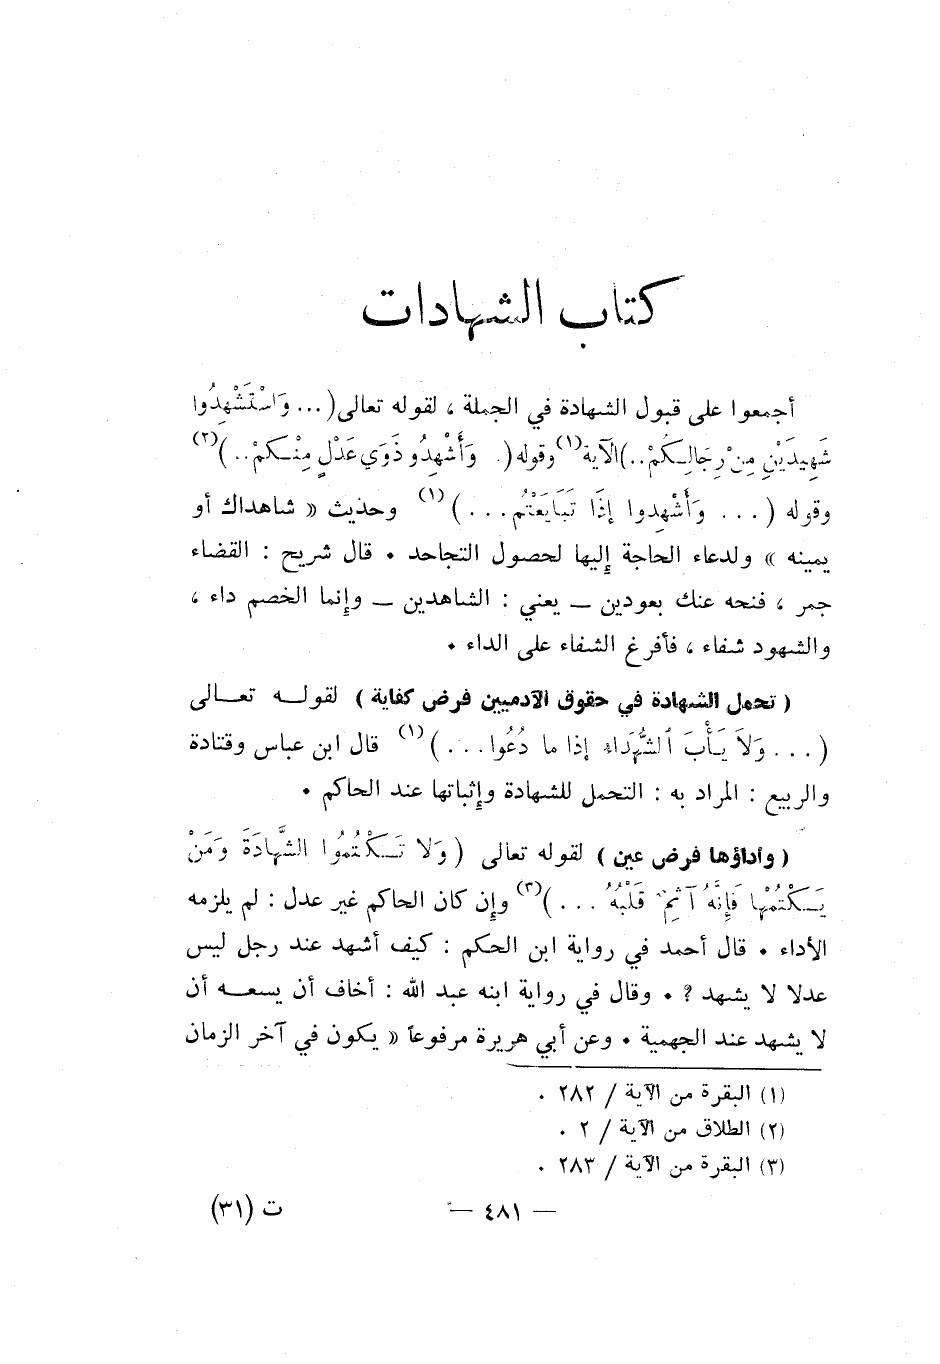 كتاب الشهادات
أجمعوا على قبول الشهادة في الجملة ، لقوله تعالى (... وَاسْتَشْهِدُوا
شَهِيدَيْنِ مِنْ رِجَالِكُمْ..) الآية (١) وقوله (. وَأَشْهِدُو ذَوَي عَدْلٍ مِنْكُمْ..) (٢)
وقوله (... وَأَشْهِدوا إِذَا تَبَايَعْتُم ...) (١) وحديث « شاهداك أو
يمينه » ولدعاء الحاجة إليها لحصول التجاحد . قال شريح : القضاء
جمر ، فنحه عنك بعودين — يعني : الشاهدين — وإنما الخصم داء ،
والشهود شفاء ، فأفرغ الشفاء على الداء .
( تحمل الشهادة في حقوق الآدميين فرض كفاية ) لقوله تعالى
(... وَلاَ يَأْبَ ٱلشُّهَدَاءُ إذا ما دُعُوا ...) (١) قال ابن عباس وقتادة
والربيع : المراد به : التحمل للشهادة وإثباتها عند الحاكم .
( وأداؤها فرض عين ) لقوله تعالى ( وَلا تَكْتُمُوا الشَّهَادَةَ وَمَنْ
يَكْتُمْهَا فَإِنَّهُ آثِمٌ قَلْبُهُ ...) (٣) وإن كان الحاكم غير عدل : لم يلزمه
الأداء . قال أحمد في رواية ابن الحكم : كيف أشهد عند رجل ليس
عدلا لا يشهد ? . وقال في رواية ابنه عبد الله : أخاف أن يسعه أن
لا يشهد عند الجهمية . وعن أبي هريرة مرفوعاً « يكون في آخر الزمان
(١) البقرة من الآية / ٢٨٢ .
(٢) الطلاق من الآية / ٢ .
(٣) البقرة من الآية / ٢٨٣ .
— ٤٨١ — ت (٣١)